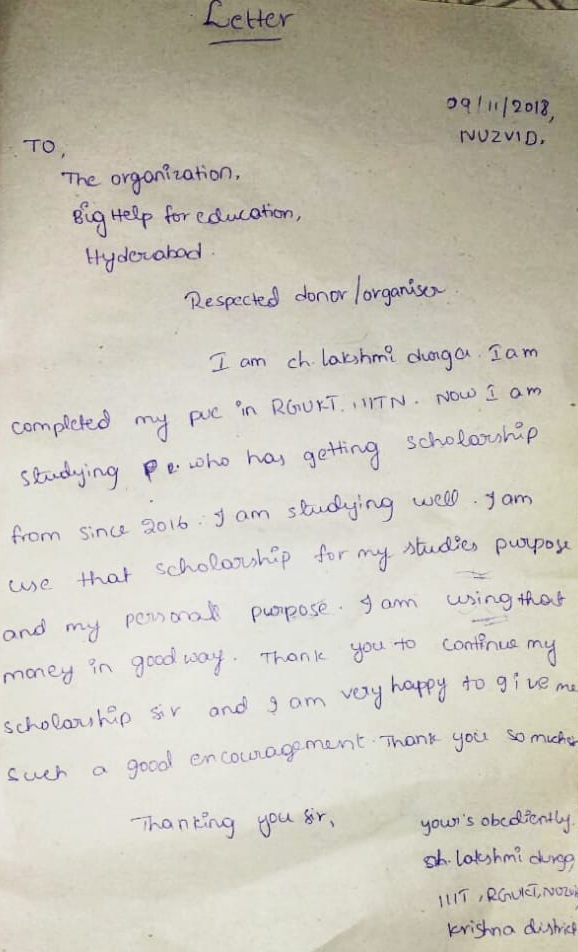 Letter
09/11/2018,
NUZVID.
TO,
The organization,
Big Help for education,
Hyderabad.
Respected donor/organiser.
I am ch. lakshmi durga. I am
completed my puc in RGUKT. IIITN. Now I am
studying who has getting scholarship
from since 2016. I am studying well. I am
use that scholarship for my studies purpose
and my personal purpose. I am using that
money in good way. Thank you to continue my
scholarship sir and I am very happy to give me
such a good encouragement. Thank you so much
Thanking you sir,
your's obediently.
ch. lakshmi durga,
IIIT, RGUKT, Nuzvi
krishna district